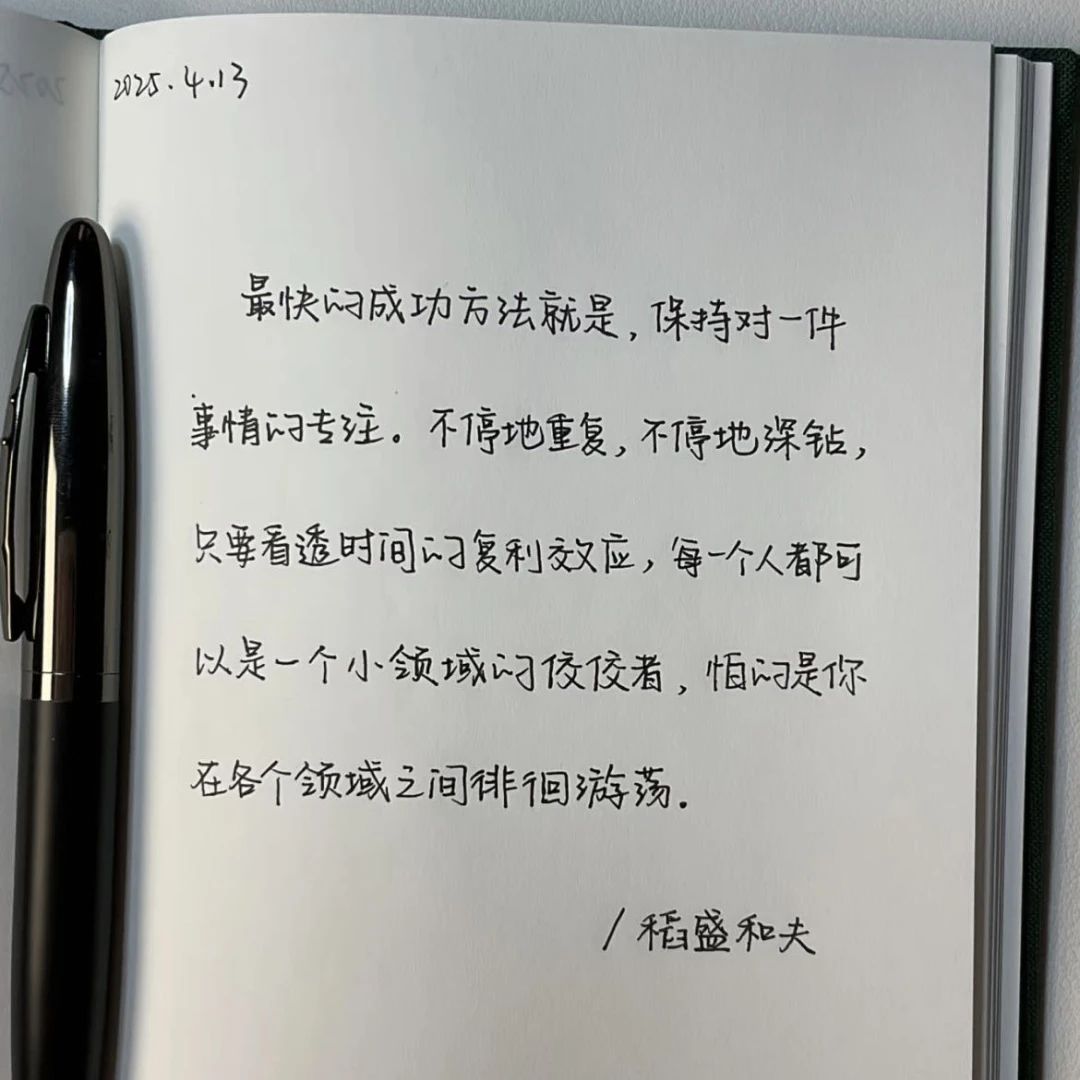 2025.4.13
最快的成功方法就是，保持对一件
事情的专注。不停地重复，不停地深钻，
只要看透时间的复利效应，每一个人都可
以是一个小领域的佼佼者，怕的是你
在各个领域之间徘徊游荡.
/稻盛和夫